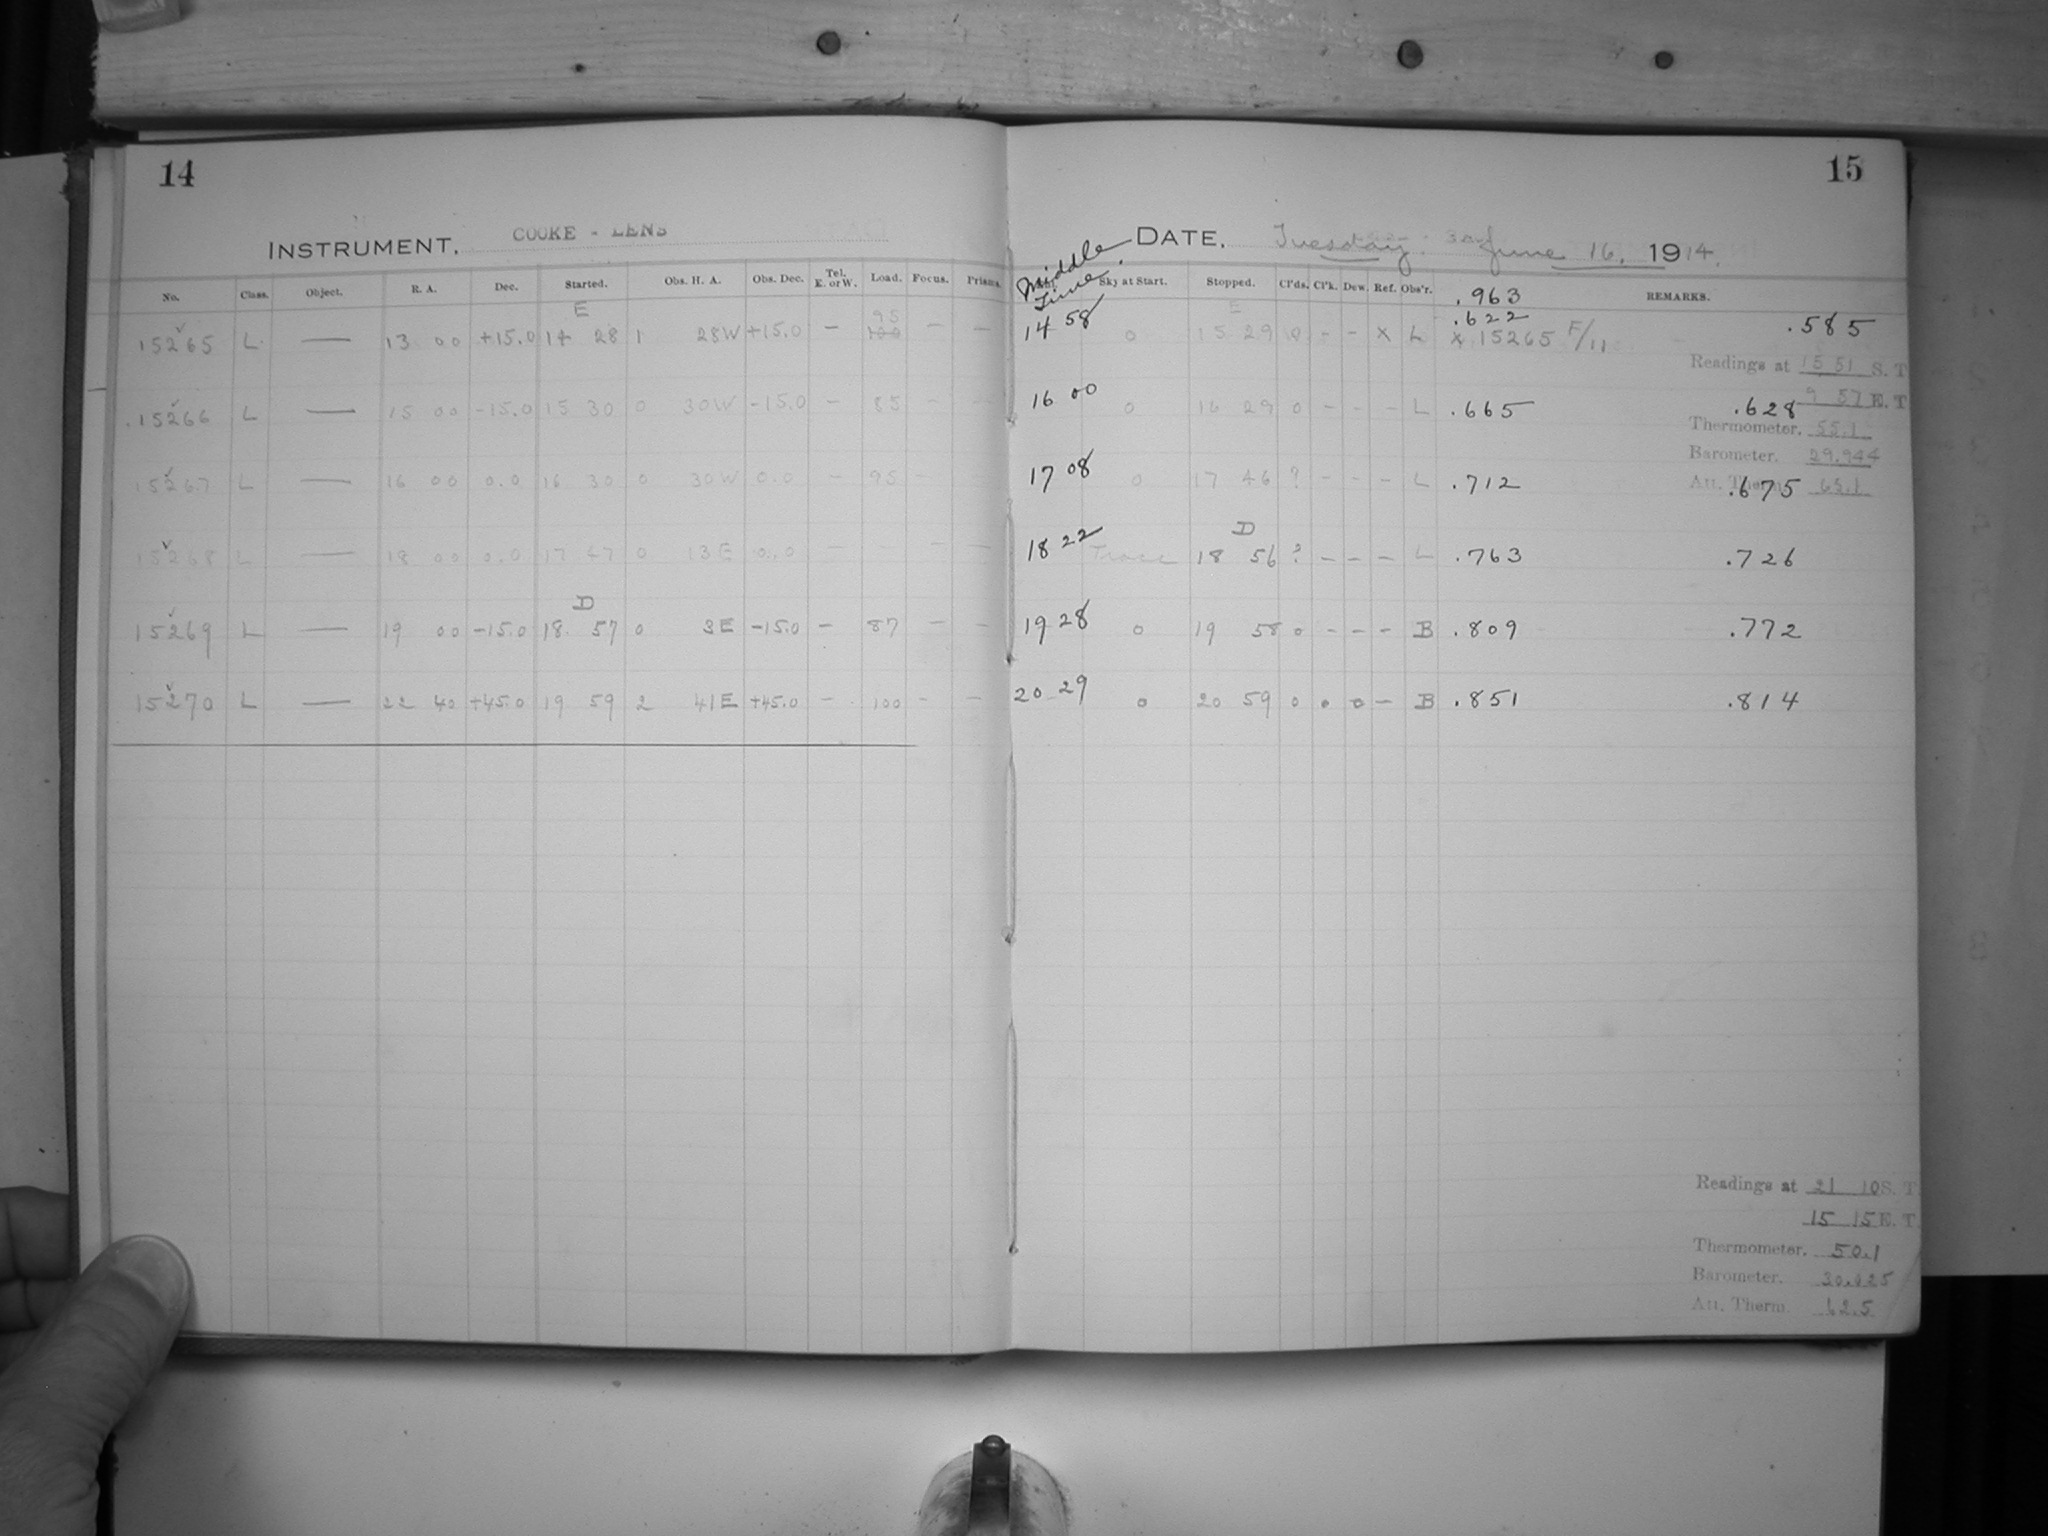 14
15
INSTRUMENT, COOKE - LENS
DATE, Tuesday June 16, 1914.
No. Class. Object. R. A. Dec. Started. Obs. H. A. Obs. Dec. Tel. E. or W. Load. Focus. Prisms. Middle Time. Sky at Start. Stopped. Cl'ds. Cl'k. Dew. Ref. Obs'r. .963 REMARKS.
E E .622
15265 L — 13 00 +15.0 14 28 1 28W +15.0 — 95 100 — — 14 58 0 15 29 0 - - x L x 15265 F/11 .585
Readings at 15 51 S. T
9 57 E. T
15266 L — 15 00 -15.0 15 30 0 30W -15.0 - 85 - - 16 00 0 16 29 0 - - - L .665 .628
Thermometer. 55.1
Barometer. 29.944
Att. Therm. 65.1
15267 L — 16 00 0.0 16 30 0 30W 0.0 - 95 - 17 08 0 17 46 ? - - - L .712 .675
D
15268 L — 18 00 0.0 17 47 0 13E 0.0 - - - 18 22 Trace 18 56 ? - - - L .763 .726
D
15269 L — 19 00 -15.0 18 57 0 3E -15.0 - 87 - - 19 28 0 19 58 0 - - - B .809 .772
15270 L — 22 40 +45.0 19 59 2 41E +45.0 - 100 - - 20 29 0 20 59 0 0 0 - B .851 .814
Readings at 21 10 S. T
15 15 E. T.
Thermometer. 50.1
Barometer. 30.025
Att. Therm. 62.5